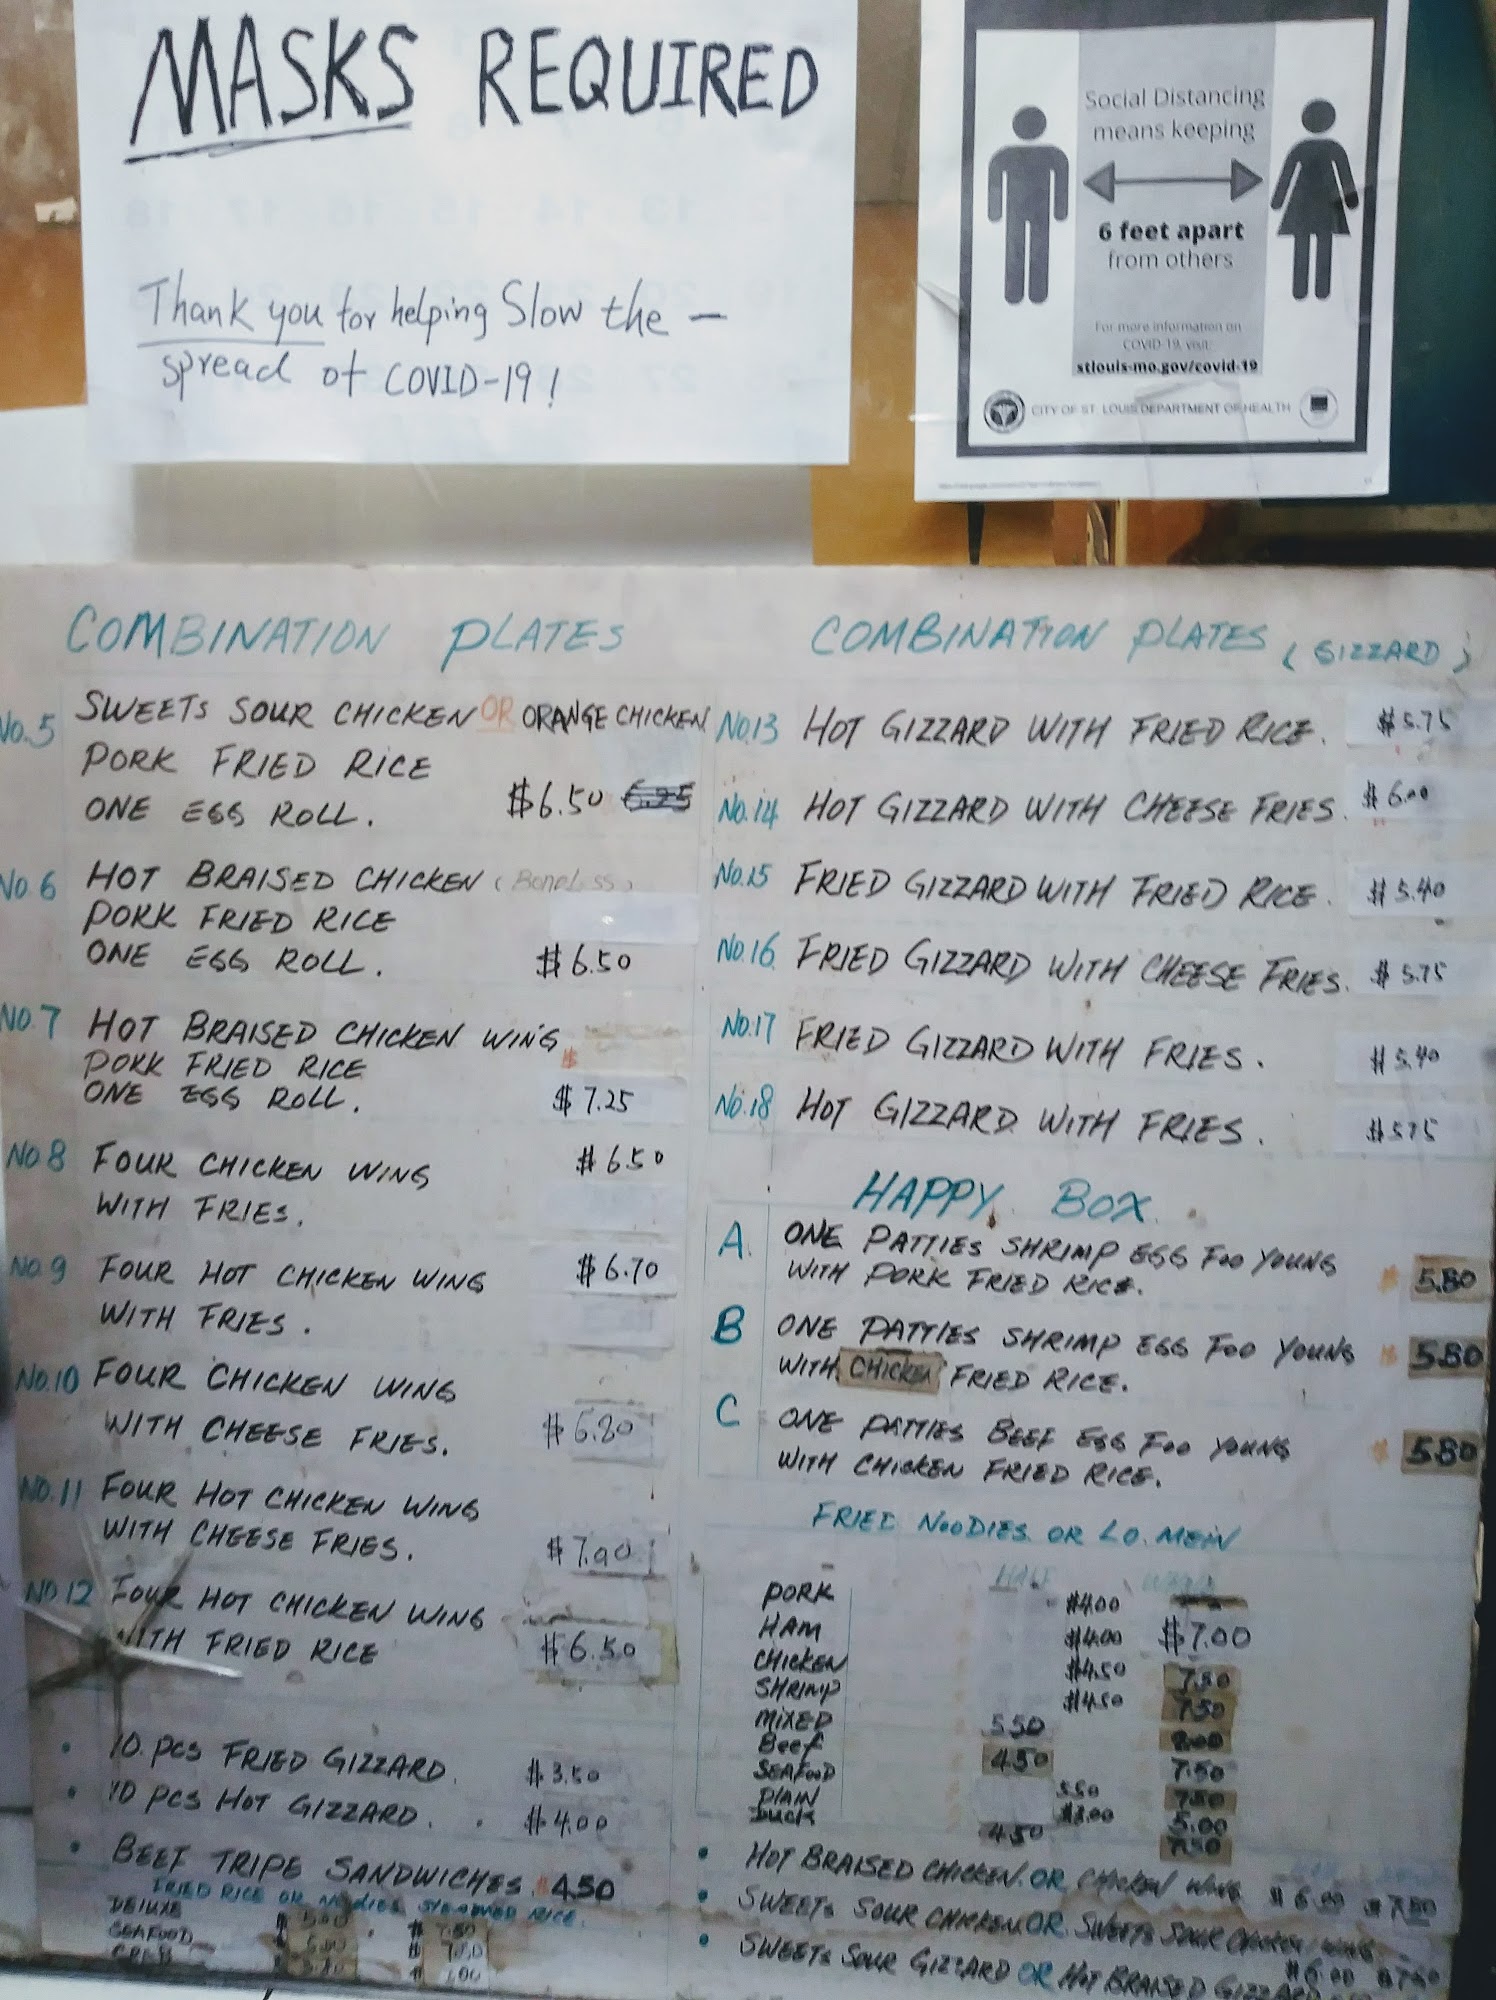 MASKS REQUIRED
Thank you for helping Slow the —
spread of COVID-19!
Social Distancing
means keeping
6 feet apart
from others
For more information on
COVID-19, visit:
stlouis-mo.gov/covid-19
CITY OF ST. LOUIS DEPARTMENT OF HEALTH
COMBINATION PLATES
No.5 SWEETS SOUR CHICKEN OR ORANGE CHICKEN
PORK FRIED RICE
ONE EGG ROLL. $6.50 6.25
No.6 HOT BRAISED CHICKEN (Boneless)
PORK FRIED RICE
ONE EGG ROLL. $6.50
No.7 HOT BRAISED CHICKEN WING
PORK FRIED RICE
ONE EGG ROLL. $7.25
No 8 FOUR CHICKEN WING $6.50
WITH FRIES.
No.9 FOUR HOT CHICKEN WING $6.70
WITH FRIES.
No.10 FOUR CHICKEN WING
WITH CHEESE FRIES. $6.80
No.11 FOUR HOT CHICKEN WING
WITH CHEESE FRIES. $7.00
No.12 FOUR HOT CHICKEN WING
WITH FRIED RICE $6.50
• 10 PCS FRIED GIZZARD. $3.50
• 10 PCS HOT GIZZARD. $4.00
• BEEF TRIPE SANDWICHES. $4.50
FRIED RICE OR NOODIES STEAMED RICE.
DELUXE 7.50
SEAFOOD
COMBINATION PLATES (GIZZARD)
No.13 HOT GIZZARD WITH FRIED RICE. $5.75
No.14 HOT GIZZARD WITH CHEESE FRIES. $6.00
No.15 FRIED GIZZARD WITH FRIED RICE. $5.40
No.16 FRIED GIZZARD WITH CHEESE FRIES. $5.75
No.17 FRIED GIZZARD WITH FRIES. $5.40
No.18 HOT GIZZARD WITH FRIES. $5.75
HAPPY BOX
A. ONE PATTIES SHRIMP EGG FOO YOUNG
WITH PORK FRIED RICE. $5.80
B ONE PATTIES SHRIMP EGG FOO YOUNG
WITH CHICKEN FRIED RICE. $5.80
C ONE PATTIES BEEF EGG FOO YOUNG
WITH CHICKEN FRIED RICE. $5.80
FRIED NOODIES OR LO. MEIN
HALF
PORK $4.00
HAM $4.00 $7.00
CHICKEN $4.50 7.50
SHRIMP $4.50 7.50
MIXED 5.50 8.00
Beef 4.50 7.50
SEAFOOD 5.50 7.50
PLAIN $3.00 5.00
Duck 4.50 7.50
• HOT BRAISED CHICKEN OR CHICKEN WING $6.00 $7.50
• SWEETS SOUR CHICKEN OR SWEETS SOUR CHICKEN WING
$6.00 $7.50
• SWEETS SOUR GIZZARD OR HOT BRAISED GIZZARD